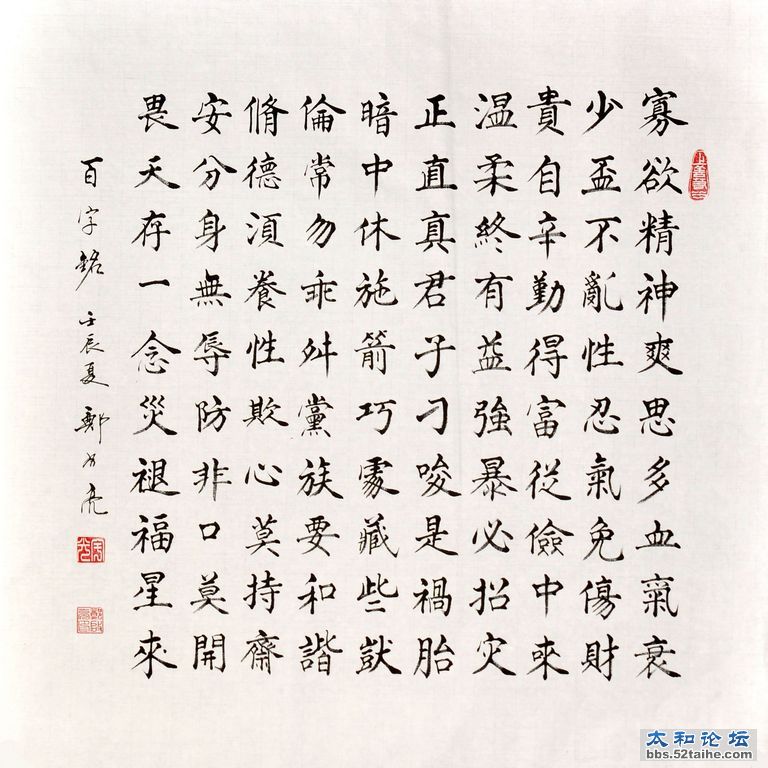 寡欲精神爽思多血氣衰
少盃不亂性忍氣免傷財
貴自辛勤得富從儉中來
温柔終有益強暴必招灾
正直真君子刁唆是禍胎
暗中休施箭巧處藏些獃
倫常勿乖舛黨族要和諧
脩德須養性欺心莫持齋
安分身無辱防非口莫開
畏天存一念災褪福星來
百字銘 壬辰夏 鄭
太和论坛
bbs.52taihe.com